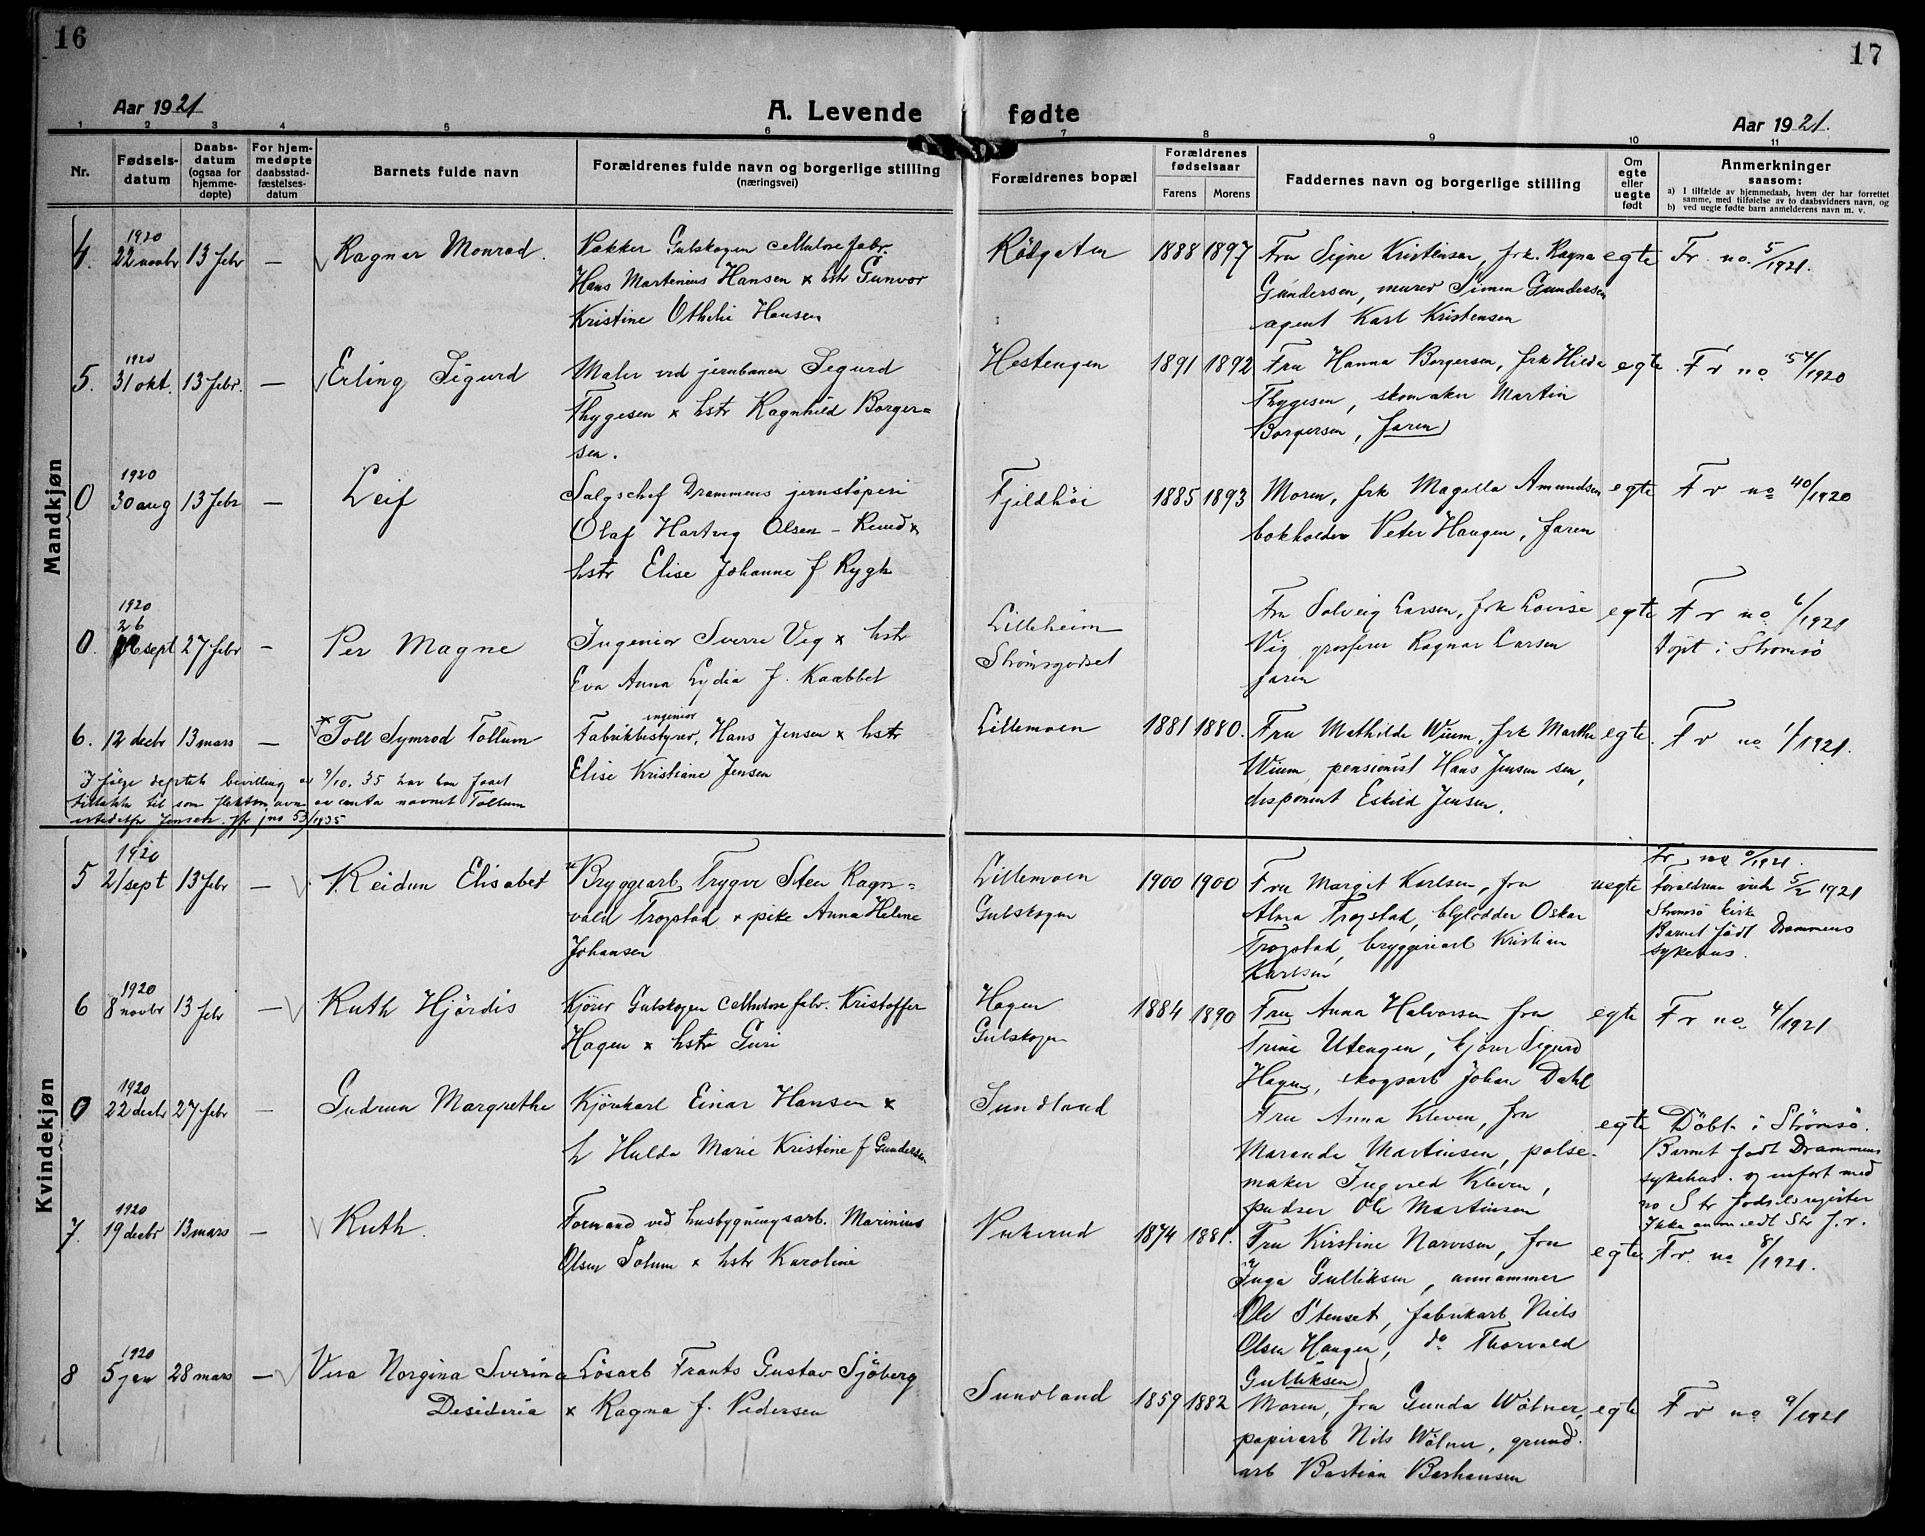 16
17
Aar 1921
A. Levende fødte
Aar 1921.
1 2 3 4 5 6 7 8 9 10 11
Nr.
Fødsels-
datum
Daabs-
datum
(ogsaa for
hjemme-
døpte)
For hjem-
medøpte
daabsstad-
fæstelses-
datum
Barnets fulde navn
Forældrenes fulde navn og borgerlige stilling
(næringsvei)
Forældrenes bopæl
Forældrenes
fødselsaar
Farens Morens
Faddernes navn og borgerlige stilling
Om
egte
eller
uegte
født
Anmerkninger
saasom:
a) I tilfælde av hjemmedaab, hvem der har forrettet
samme, med tilføielse av to daabsvidners navn, og
b) ved uegte fødte barn anmelderens navn m. v.
Mandkjøn
4.
1920
22 novbr
13 febr
—
Ragnar Monrad.
Pakker Gulskogen Cellulosefabr.
Hans Martenius Hansen x hstr Gunvor
Kristine Othilie Hansen
Rödgaten
1888 1897
Fru Signe Kristensen, frk. Ragna
Gundersen, murer Simen Gundersen
agent Karl Kristensen
egte
Fr no. 5/1921.
5.
1920
31 okt.
13 febr.
—
Erling Sigurd
Maler ved jernbanen Sigurd
Thygesen x hstr Ragnhild Borger=
sen.
Hestengen
1891 1892
Fru Hanna Borgersen, frk Hilda
Thygesen, skomaker Martin
Borgersen, faren
egte
Fr no 54/1920
0
1920
30 aug
13 febr
—
Leif
Salgschef Drammens jernstöperi
Olaf Hartvig Olsen - Ruud x
hstr Elise Johanne f Rygh
Fjeldhöi
1885 1893
Moren, frk Magella Amundsen
bokholder Peter Haugen, faren
egte
Fr no 40/1920
0.
1920
26
sept
27 febr
—
Per Magne
Ingeniör Sverre Vig x hstr
Eva Anna Lydia f. Kaabbel
Lilleheim
Strömsgodset
Fru Solveig Larsen, frk Lovise
Vig, grosserer Ragnar Larsen
faren
egte
Fr no 6/1921
Döpt i Strömsö
6.
12 decbr
13 mars
—
* Toll Symrod Tollum
ingeniör
Fabrikbestyrer, Hans Jensen x hstr
Elise Kristiane Jensen
Lillemoen
1881 1880.
Fru Mathilde Wium, frk Marthe
Wium, pensionist Hans Jensen sen,
disponent Eskild Jensen.
egte.
Fr no 1/1921.
I følge deptets bevilling av 9/10. 35 har han faaet
tilladelse til som slektsnavn av anta navnet Tollum
istedetfor Jensen. Jfr jno 53/1935
Kvindekjøn
5
1920
21 sept
13 febr
—
Reidun Elisabet
Bryggearb. Trygve Sten Ragn=
vald Trogstad x pike Anna Helene
Johansen
Lillemoen
Gulskogen
1900 1900
Fru Margit Karlsen, fru
Alma Trogstad, blylodder Oskar
Trogstad, bryggeriarb Kristian
Karlsen
uegte
Forældrene viet 5/2 1921
Strömsö kirke
Barnet födt Drammens
sykehus.
6
1920
8 novbr
13 febr
—
Ruth Hjördis
Kjörer Gulskogen Cellulosefabr. Kristoffer
Hagen x hstr Guri
Hagen
Gulskogen
1884 1890
Fru Anna Halvorsen fru
Trine Utengen, kjörer Sigurd
Hagen, skogsarb Johan Dahl
egte
Fr no 4/1921
0
1920
22 decbr
27 febr
—
Gudrun Margrethe
Kjörekarl Einar Hansen x
h Hulda Marie Kristine f Gundersen
Sundland
Fru Anna Kleven, fru
Marande Martinsen, pölse-
maker Ingvald Kleven,
pudser Ole Martinsen
egte
Döbt i Strömsö.
Barnet født Drammens
sykehus. og infört med
no 5 Str fødselsregister
Ikke anmeldt Str f.r.
7.
1920
19 decbr
13 mars
—
Ruth.
Formand ved husbygningsarb. Marinius
Olsen Solum x hstr Karoline
Pukerud
1874 1881.
Fru Kirstine Narvesen, fru
Inga Gulliksen, annammer
Ole Stenset, fabrikarb Niels
Olsen Haugen, do Thorvald
Gulliksen
egte.
Fr. no 8/1921.
8
1920
5 jan
28 mars
—
Vera Norgina Sverina
Desideria
Lösarb Frants Gustav Sjöberg
x Ragna f. Pedersen
Sundland
1859 1882
Moren, fru Gunda Wölner,
papirarb Nils Wölner, grund.
arb Bastian Barhansen
egte
Fr no 9/1921